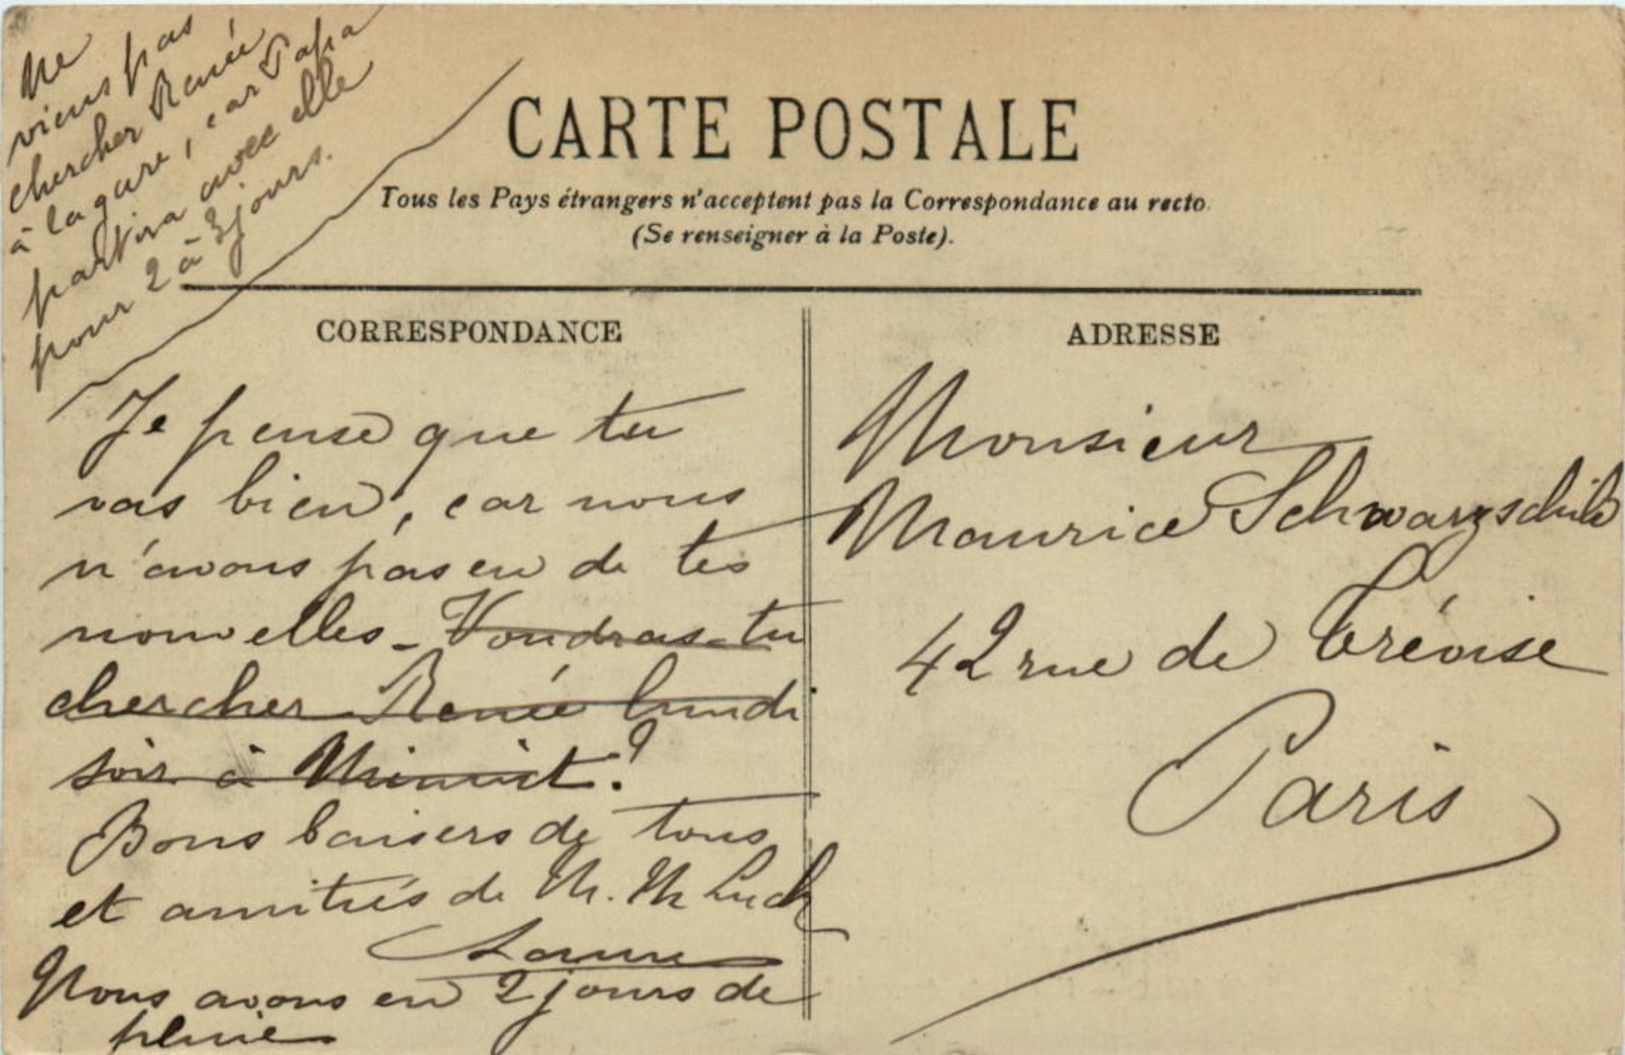 Ne
viens pas
chercher Renée
à la gare, car Papa
partira avec elle
pour 2 à 3 jours.
CARTE POSTALE
Tous les Pays étrangers n'acceptent pas la Correspondance au recto
(Se renseigner à la Poste).
CORRESPONDANCE
Je pense que tu
vas bien, car nous
n'avons pas eu de tes
nouvelles - Voudras-tu
chercher Renée lundi
soir à Minuit ?
Bons baisers de tous
et amitiés de M. M
Laure
Nous avons eu 2 jours de
pluie
ADRESSE
Monsieur
Maurice Schwarzschild
42 rue de Trévise
Paris